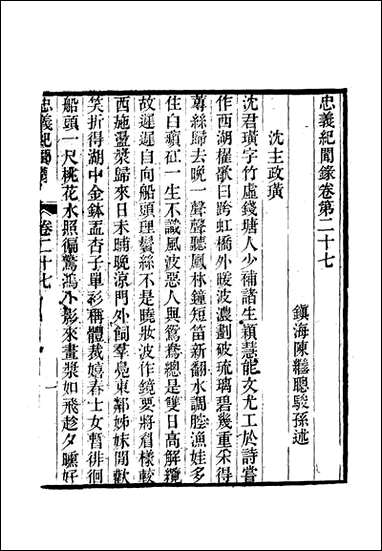 忠義紀聞錄卷第二十七
鎮海陳繼聰駿孫述
沈主政璜
沈君璜字竹虛錢塘人少補諸生穎慧能文尤工於詩嘗
作西湖櫂歌曰跨虹橋外暖波濃劃破琉璃碧幾重采得
蓴絲歸去晚一聲聲聽鳳林鐘短笛新翻水調腔漁娃多
住白蘋矼一生不識風波惡人與鴛鴦總是雙日高解纜
故遲遲自向船頭理鬢絲不是曉妝波作鏡要將眉樣較
西施盪槳歸來日未晡晚涼門外飼羣鳧東鄰姊妹閒歡
笑折得湖中金鉢盂杏子單衫稱體裁嬉春士女暫徘徊
船頭一尺桃花水照徧驚鴻小影來畫槳如飛趁夕曛好
忠義紀聞錄 卷二十七